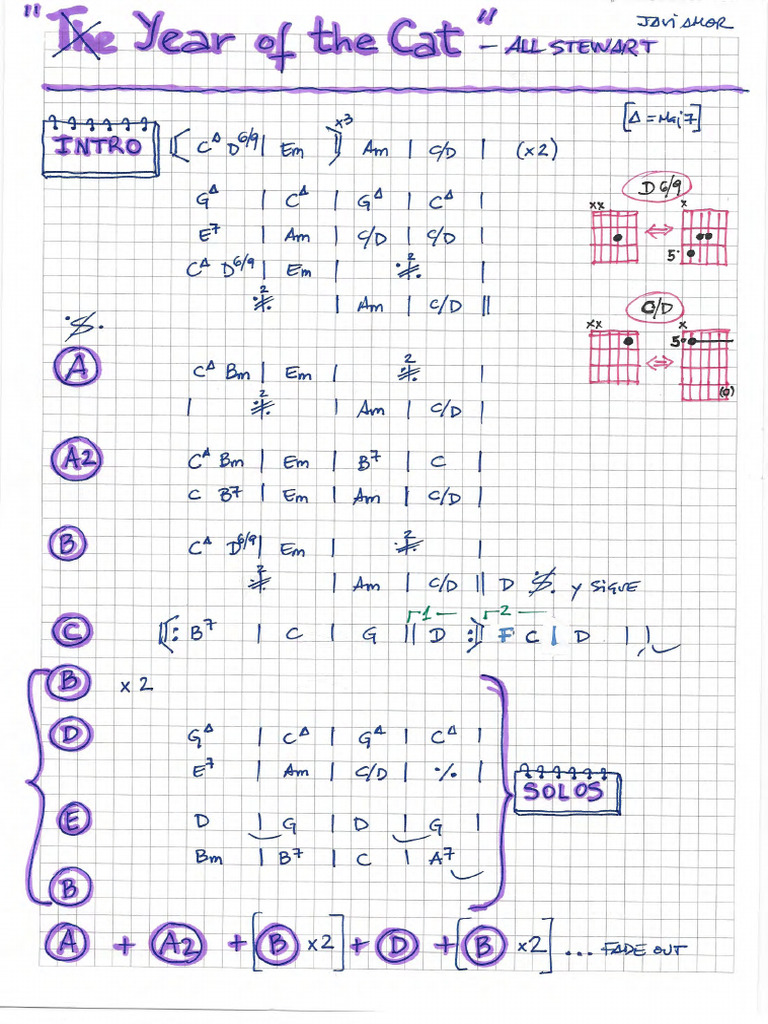 "The Year of the Cat" - ALL STEWART
JAVI AMOR
[Δ = Maj7]
INTRO [ CΔ D6/9 | Em ] x3 Am | C/D | (x2)
GΔ | CΔ | GΔ | CΔ |
E7 | Am | C/D | C/D |
CΔ D6/9 | Em | 2 |
2 | Am | C/D ||
D 6/9
xx x
5
C/D
xx x
5
(0)
A CΔ Bm | Em | 2 |
| 2 | Am | C/D |
A2 CΔ Bm | Em | B7 | C |
C B7 | Em | Am | C/D |
B CΔ D6/9 | Em | 2 |
2 | Am | C/D || D 𝄋 y SIGUE
1 2
C [: B7 | C | G || D :] F C | D | |
B x 2
D GΔ | CΔ | GΔ | CΔ |
E7 | Am | C/D | ·/. |
SOLOS
E D | G | D | G |
Bm | B7 | C | A7
B
A + A2 + [B x2] + D + [B x2] ... FADE OUT